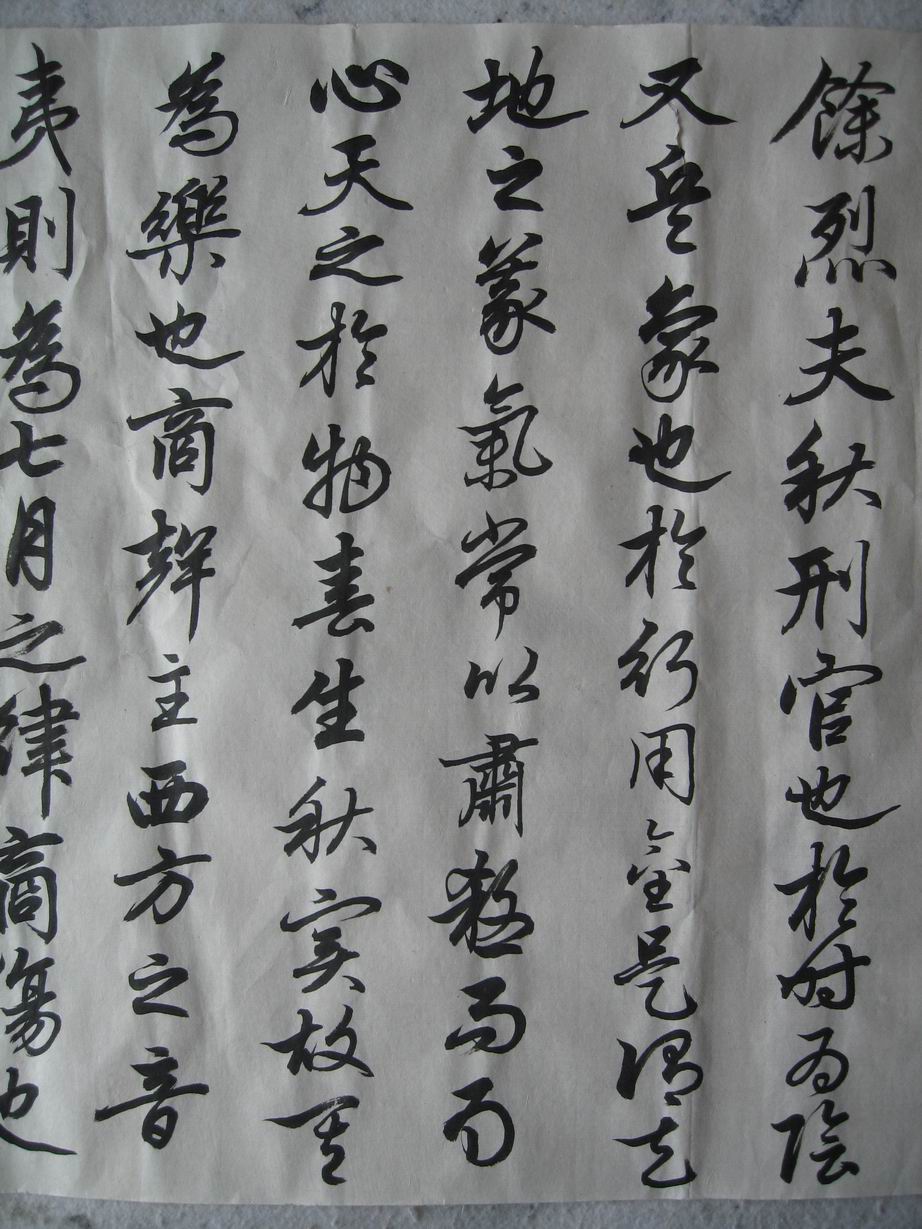 餘烈夫秋刑官也於时为陰
又兵象也於行用金是謂天
地之義氣常以肅殺而而
心天之於物春生秋实故其
為樂也商聲主西方之音
夷則為七月之律商傷也